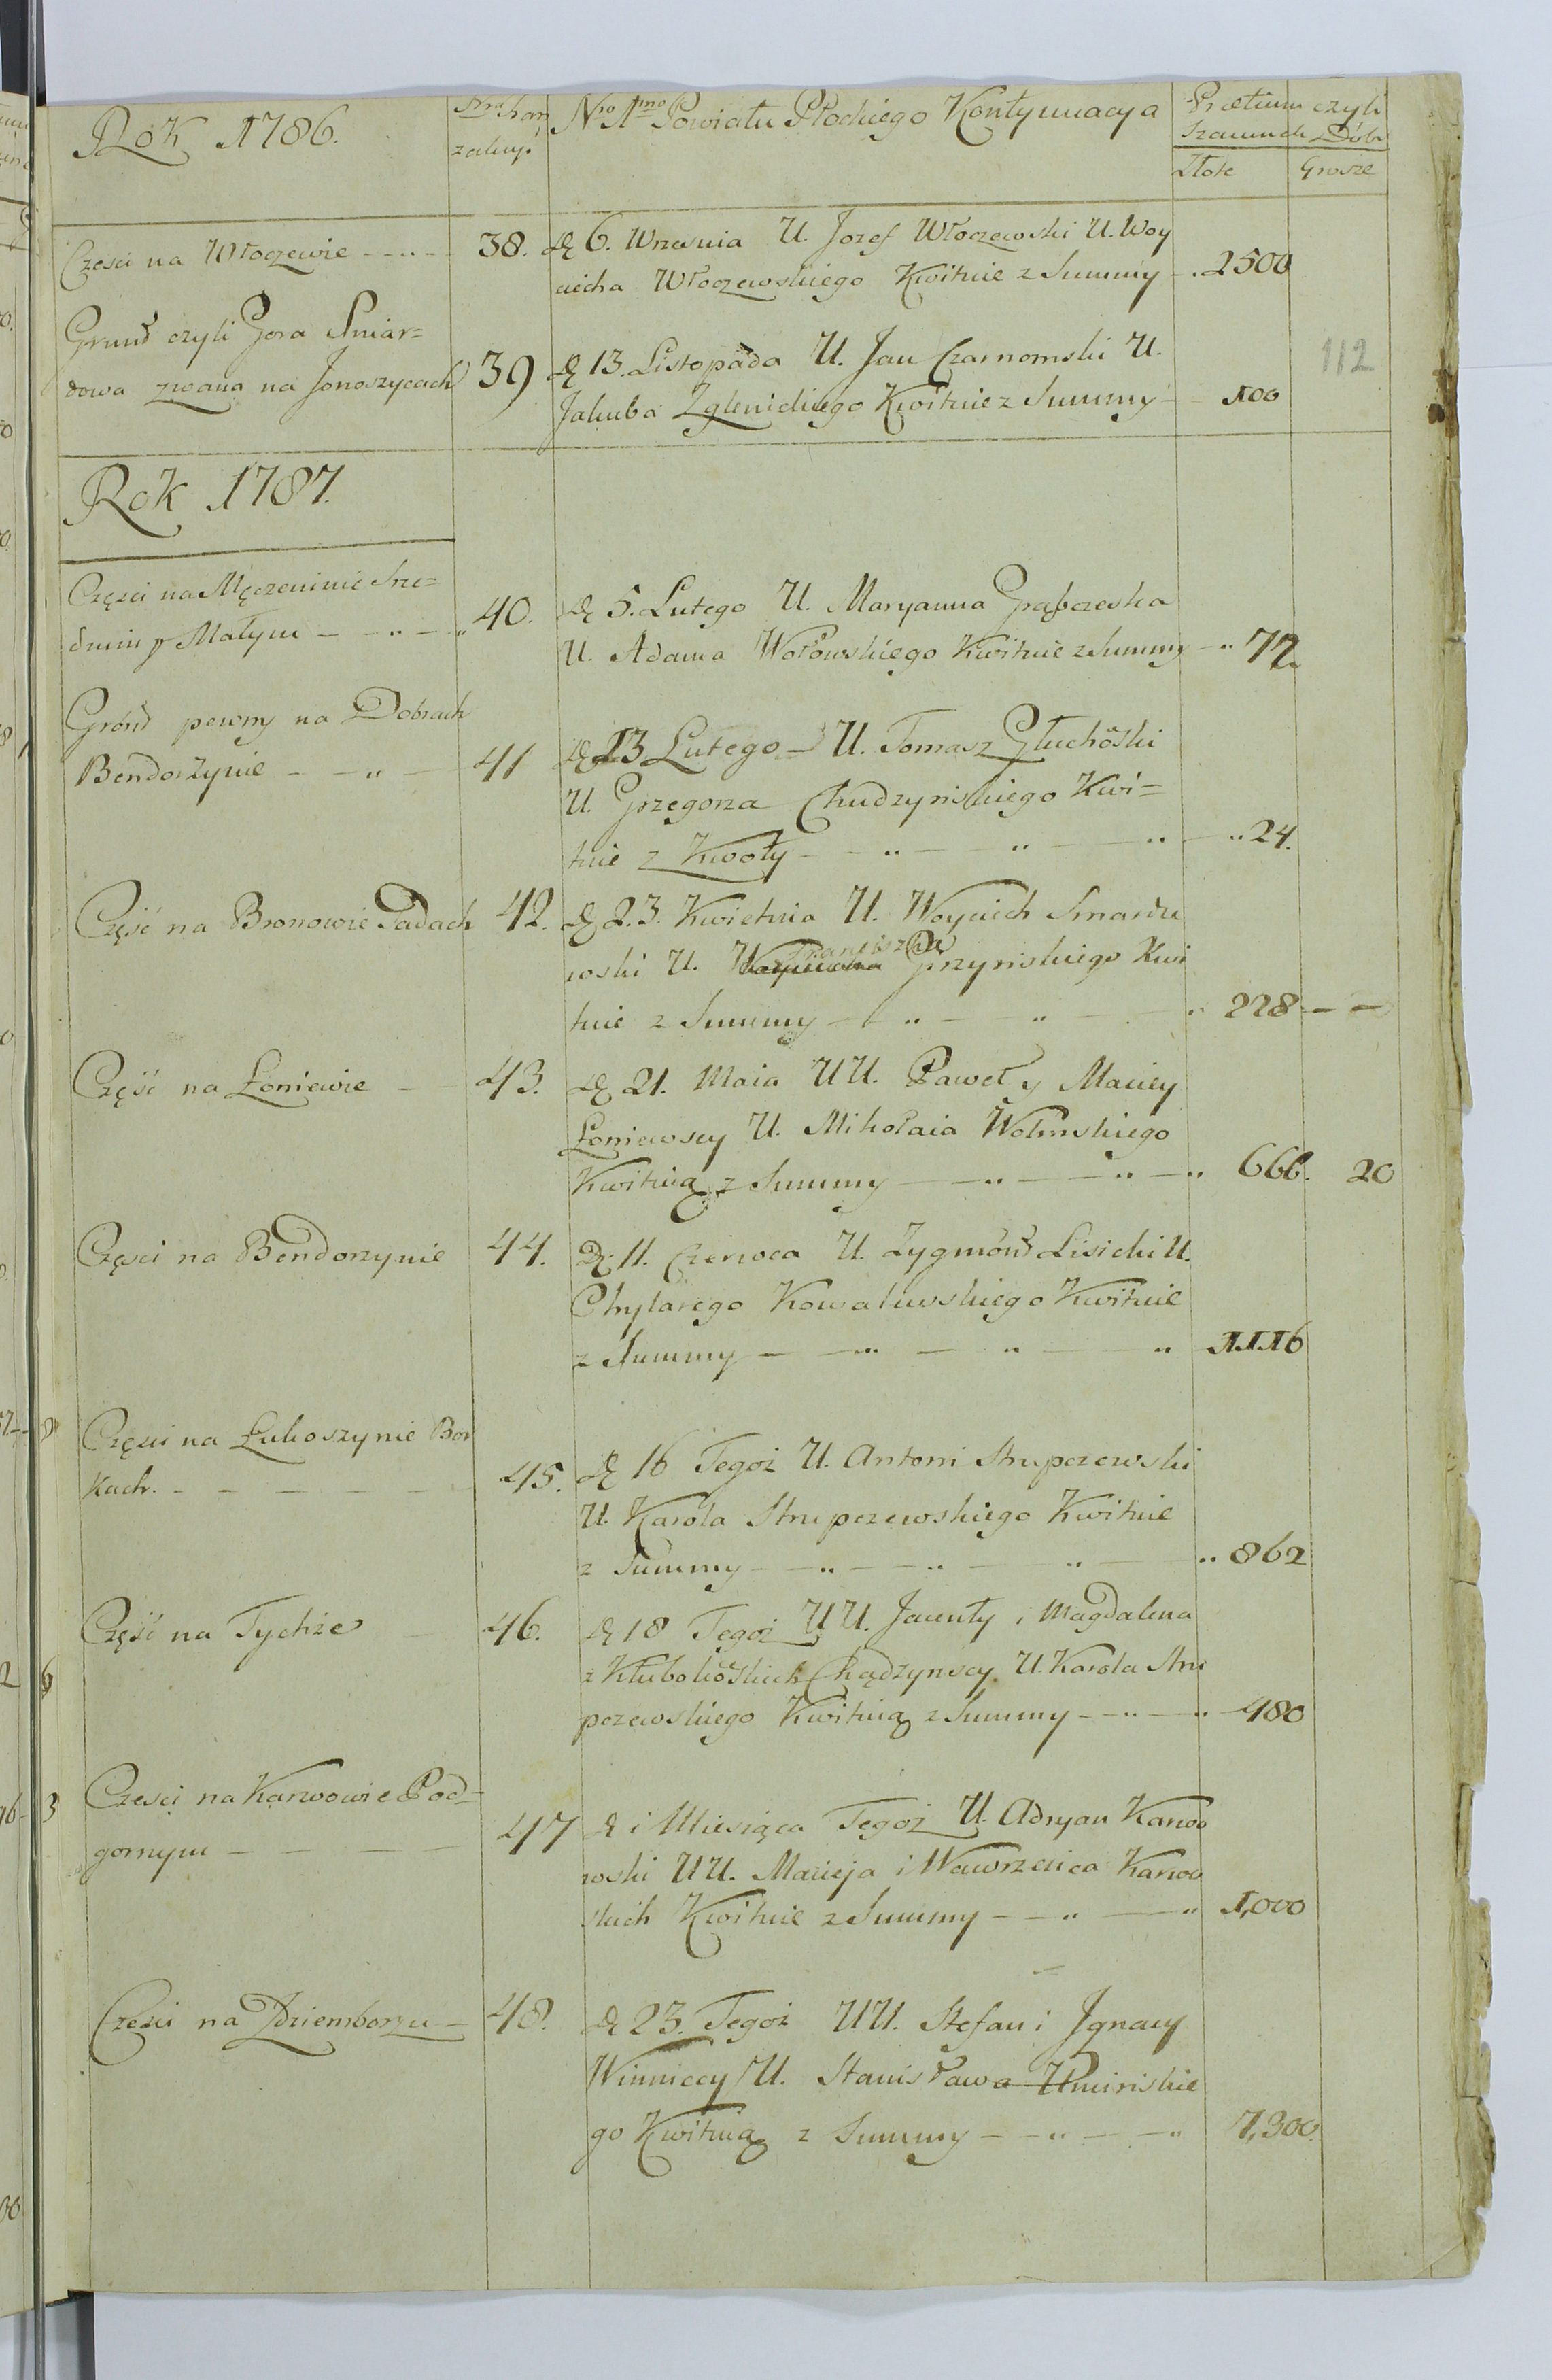 Rok 1786.
Nro Imo Powiatu Płockiego Kontynuacya
Prætium czyli
Szacunek Dóbr
Złote Grosze
Czesci na Włoczewie 38. D 6. Wrzesnia U. Jozef Włoczewski U. Woy
ciecha Włoczewskiego Kwituie z Summy 2500
Grunt czyli Gora Smar=
dowa zwana na Jonoszycach 39 D 13. Listopada U. Jan Czarnomski U.
Jakuba Zglenickiego Kwituie z Summy 100
112
Rok 1787.
Części na Męczeninie Srze=
dnim y Małym 40. D 5. Lutego U. Maryanna Grąbczeska
U. Adama Wołowskiego Kwituie z Summy 72
Grónt pewny na Dobrach
Bendorzynie 41 D 13 Lutego U. Tomasz Głuchoski
U. Grzegorza Chudzynskiego Kwi=
tuie z Kwoty 24.
Część na Bronowie Sadach 42. D 23. Kwietnia U. Woyciech Smardu
woski U. Franciszka Grzynskiego Kwi
tuie z Summy 228 — —
Część na Łoniewie 43. D 21. Maia UU. Paweł y Maciey
Łoniewscy U. Mikołaia Wolinskiego
Kwituią z Summy 666. 20
Części na Bendorzynie 44. D 11. Czerwca U. Zygmónt Lisicki U.
Chylarego Kowalewskiego Kwituie
z Summy 1116
Części na Łukoszynie Bor
kach. 45. D 16 Tegoż U. Antoni Strupczewski
U. Karola Strupczewskiego Kwituie
z Summy 862
Część na Tychże 46. D 18 Tegoż UU. Jacenty i Magdalena
z Kłubokoskich Chądzynscy U. Karola Stru
pczewskiego Kwituią z Summy 480
Czesci na Karwowie Pod=
gornym 47 D i Miesiąca Tegoż U. Adryan Karwo
woski UU. Macieja i Wawrzenca Karwo
skich Kwituie z Summy 1,000
Czesci na Dziemborzu 48. D 23. Tegoż UU. Stefan i Jgnacy
Winniccy U. Stanisława Uminskie
go Kwituią z Summy 7,300.